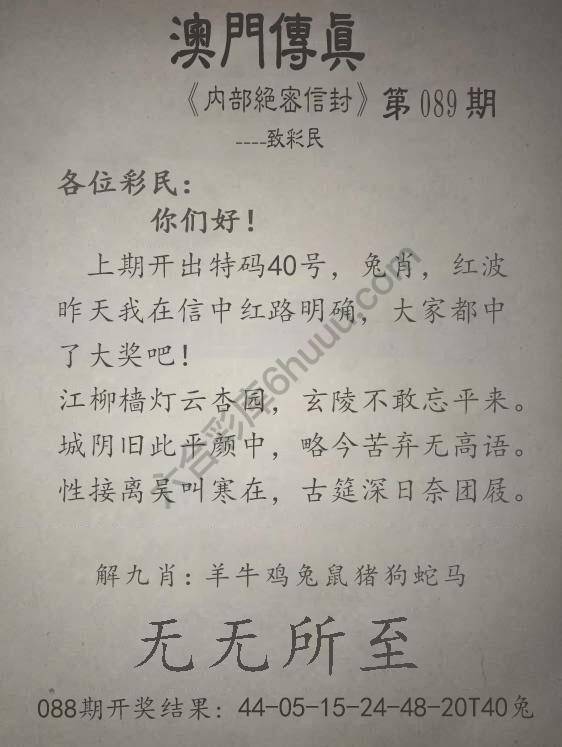 澳門傳真
《内部絕密信封》第089期
----致彩民
各位彩民：
你们好！
上期开出特码40号，兔肖，红波
昨天我在信中红路明确，大家都中
了大奖吧！
江柳樯灯云杏园，玄陵不敢忘平来。
城阴旧此平颜中，略今苦弃无高语。
性接离吴叫寒在，古筵深日奈团屐。
解九肖：羊牛鸡兔鼠猪狗蛇马
无无所至
088期开奖结果：44-05-15-24-48-20T40兔
六合彩库6huuu.com